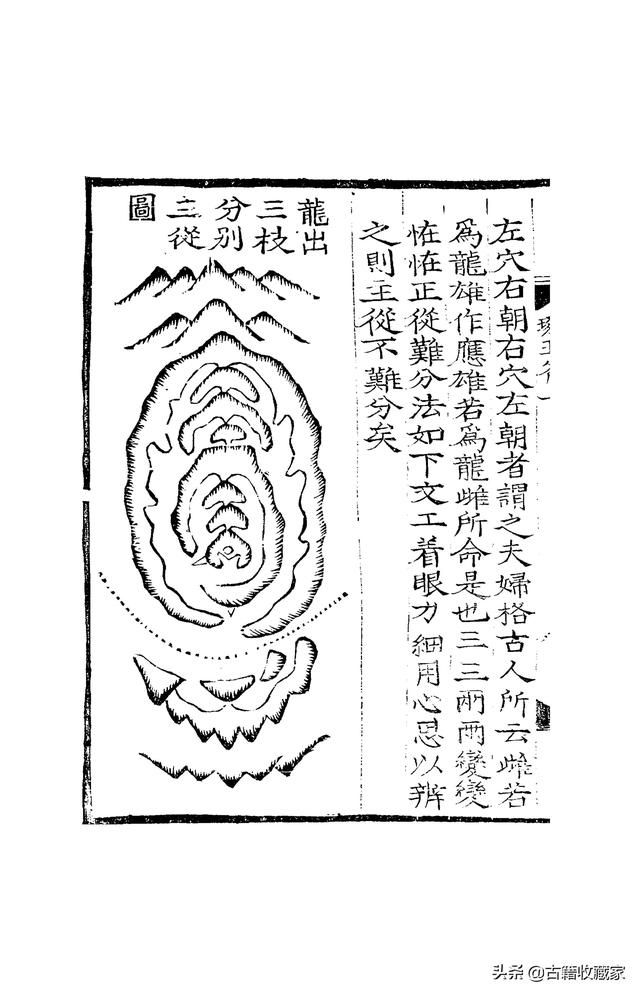 左穴右朝右穴左朝者謂之夫婦格古人所云雌若
爲龍雄作應雄若爲龍雌所命是也三三兩兩變變
恠恠正從難分法如下文工着眼力細用心思以辨
之則主從不難分矣
龍出
三枝
分別
主從
圖
头条@古籍收藏家